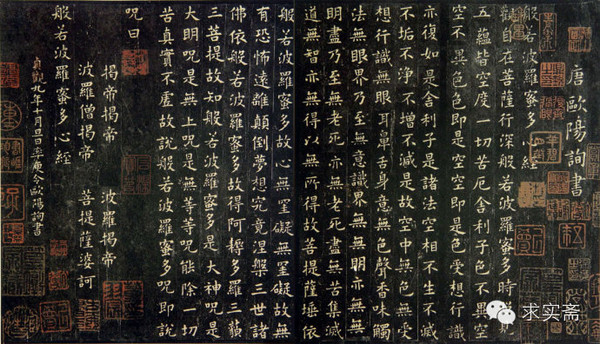 唐歐陽詢書
般若波羅蜜多心經
觀自在菩薩行深般若波羅蜜多時照見
五蘊皆空度一切苦厄舍利子色不異空
空不異色色即是空空即是色受想行識
亦復如是舍利子是諸法空相不生不滅
不垢不淨不增不減是故空中無色無受
想行識無眼耳鼻舌身意無色聲香味觸
法無眼界乃至無意識界無無明亦無無
明盡乃至無老死亦無老死盡無苦集滅
道無智亦無得以無所得故菩提薩埵依
般若波羅蜜多故心無罣礙無罣礙故無
有恐怖遠離顛倒夢想究竟涅槃三世諸
佛依般若波羅蜜多故得阿耨多羅三藐
三菩提故知般若波羅蜜多是大神呪是
大明呪是無上呪是無等等呪能除一切
苦真實不虛故說般若波羅蜜多呪即說
呪曰
揭帝揭帝 波羅揭帝
波羅僧揭帝 菩提薩婆訶
般若波羅蜜多心經
貞觀九年十月旦日率更令歐陽詢書
求实斋